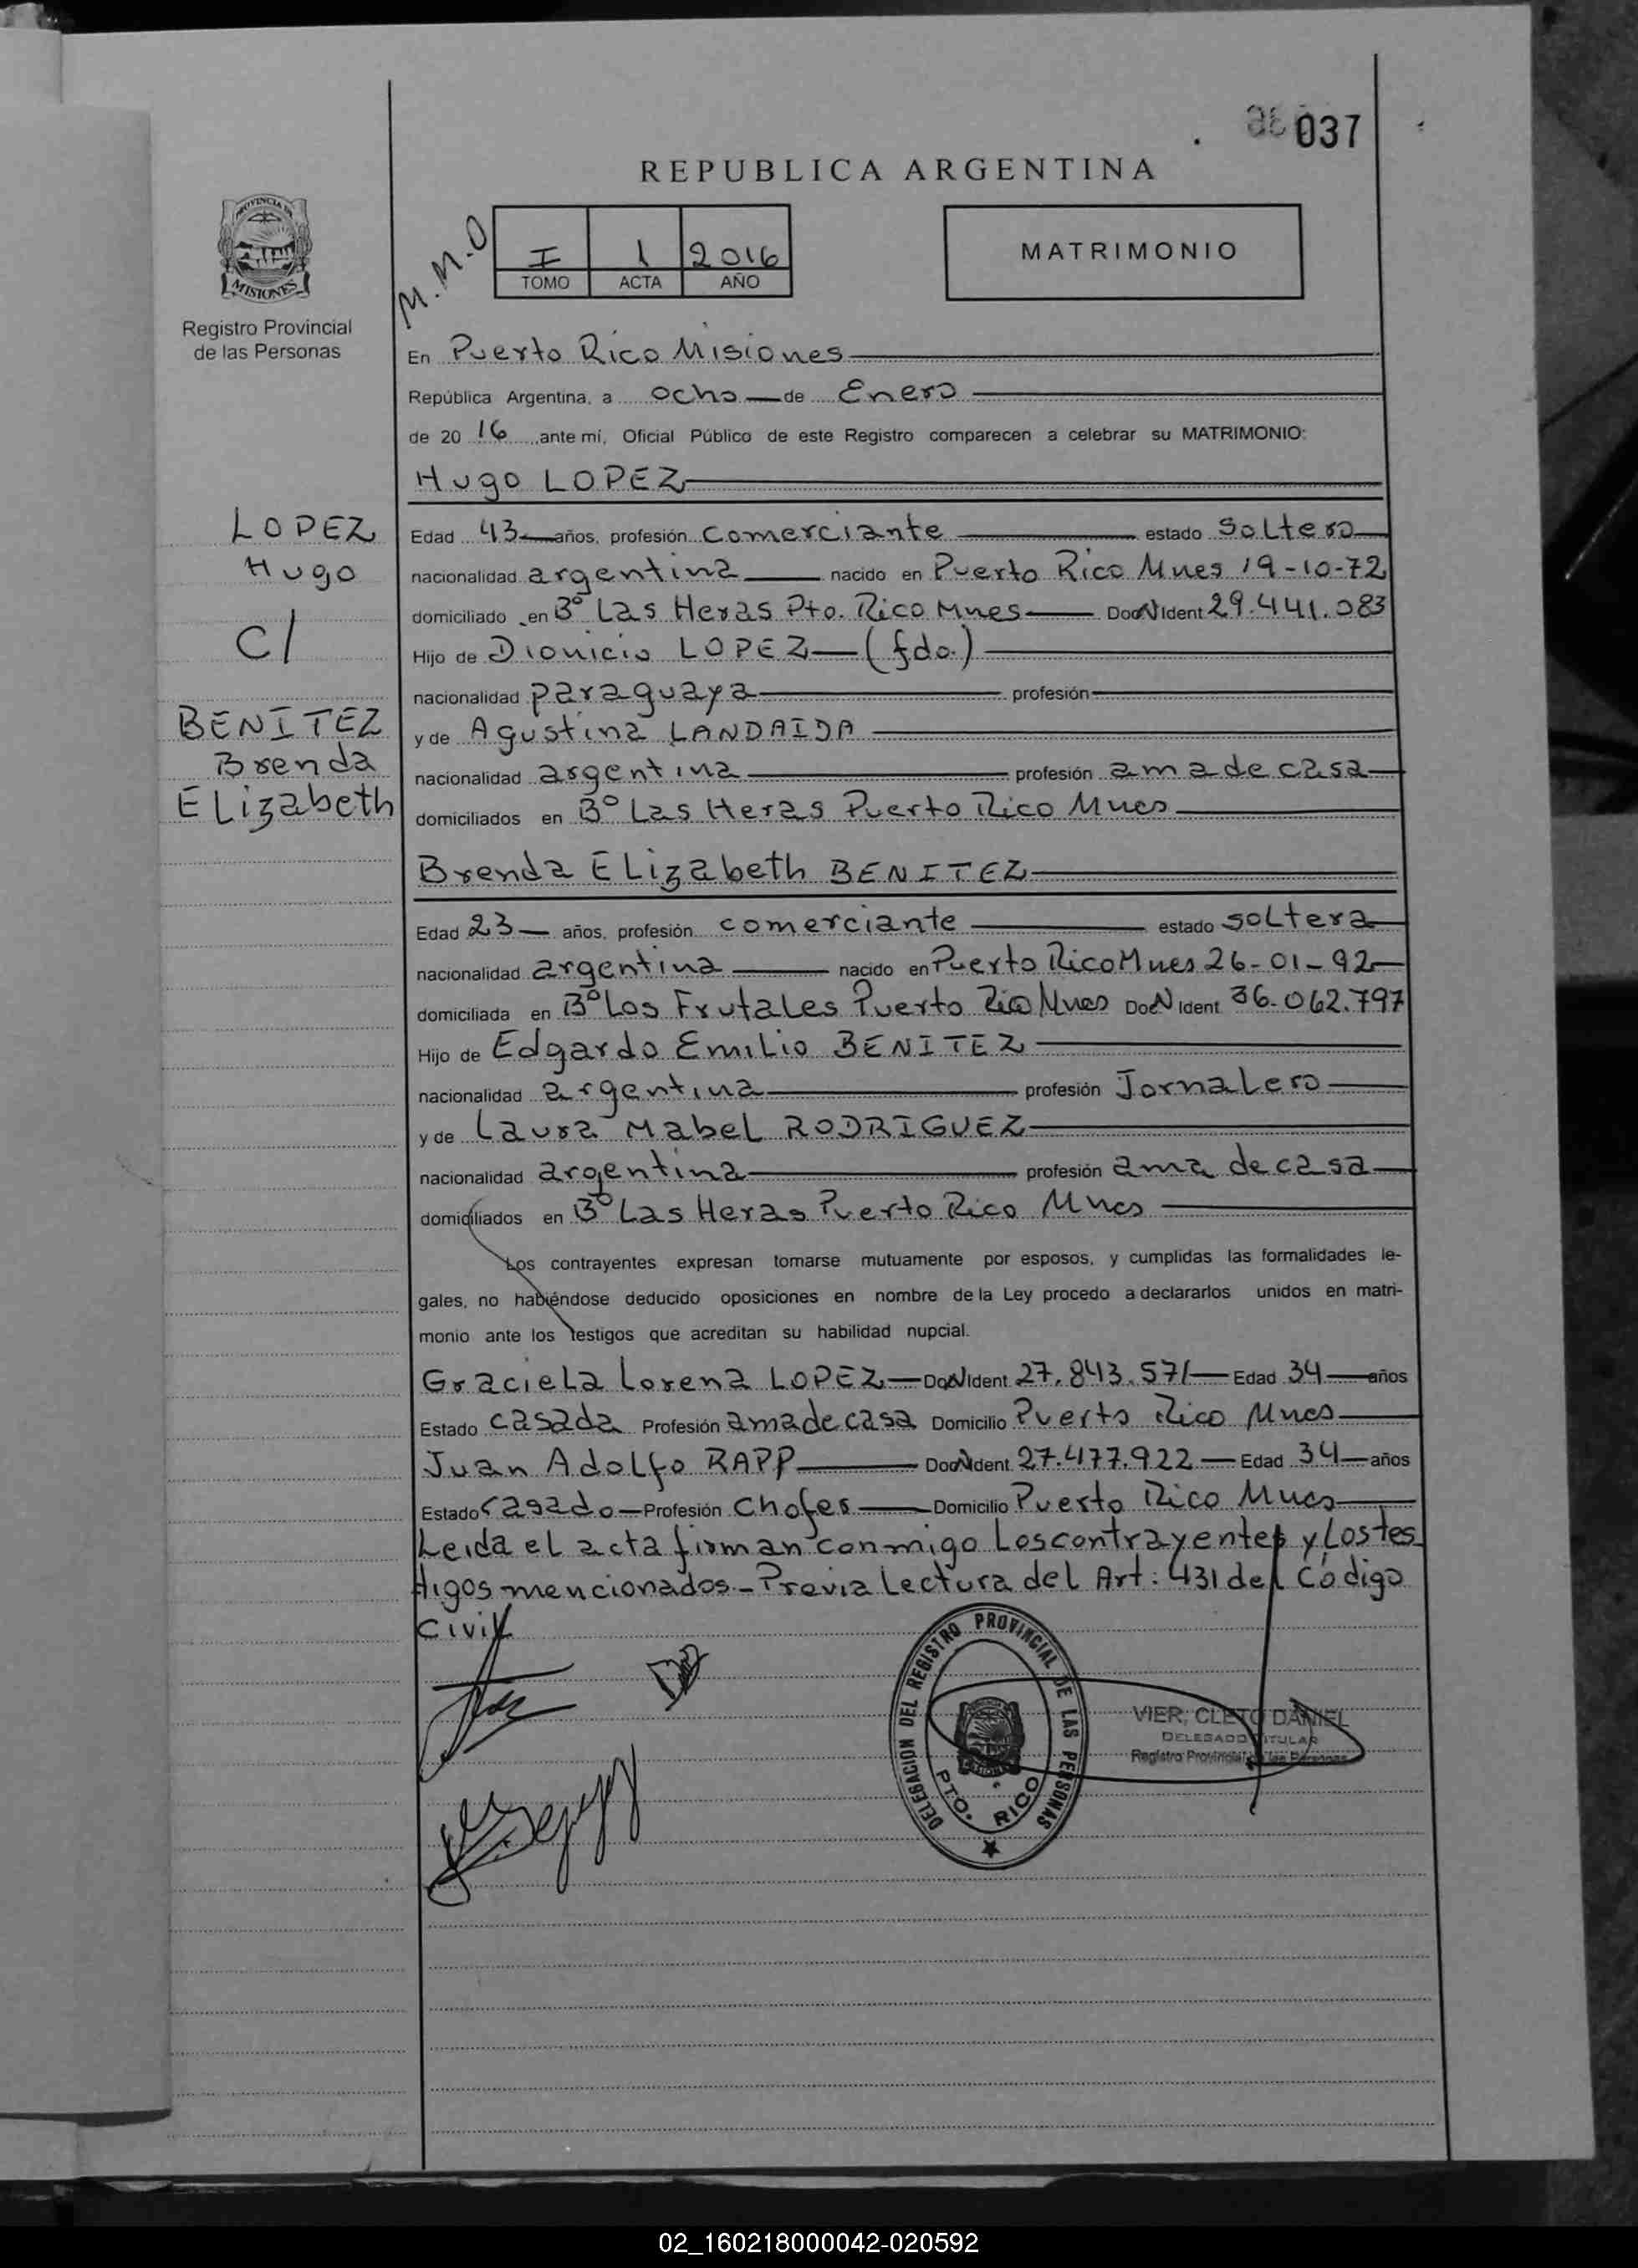 037
REPUBLICA ARGENTINA
M.M.O
I 1 2016
TOMO ACTA AÑO
MATRIMONIO
PROVINCIA DE
MISIONES
Registro Provincial
de las Personas
En Puerto Rico Misiones
República Argentina, a ocho de Enero
de 20 16 ante mí, Oficial Público de este Registro comparecen a celebrar su MATRIMONIO:
Hugo LOPEZ
LOPEZ
Hugo
C/
BENITEZ
Brenda
Elizabeth
Edad 43 años, profesión Comerciante estado Soltero
nacionalidad argentina nacido en Puerto Rico Mnes 19-10-72
domiciliado en Bº Las Heras Pto. Rico Mnes Doc N Ident 29.441.083
Hijo de Dionicio LOPEZ (fdo.)
nacionalidad paraguaya profesión
y de Agustina LANDAIDA
nacionalidad argentina profesión ama de casa
domiciliados en Bº Las Heras Puerto Rico Mnes
Brenda Elizabeth BENITEZ
Edad 23 años, profesión comerciante estado soltera
nacionalidad argentina nacido en Puerto Rico Mnes 26-01-92
domiciliada en Bº Los Frutales Puerto Rico Mnes Doc N Ident 36.062.797
Hijo de Edgardo Emilio BENITEZ
nacionalidad argentina profesión Jornalero
y de Laura Mabel RODRIGUEZ
nacionalidad argentina profesión ama de casa
domiciliados en Bº Las Heras Puerto Rico Mnes
Los contrayentes expresan tomarse mutuamente por esposos, y cumplidas las formalidades le-
gales, no habiéndose deducido oposiciones en nombre de la Ley procedo a declararlos unidos en matri-
monio ante los testigos que acreditan su habilidad nupcial.
Graciela Lorena LOPEZ Doc N Ident 27.843.571 Edad 34 años
Estado casada Profesión ama de casa Domicilio Puerto Rico Mnes
Juan Adolfo RAPP Doc N Ident 27.477.922 Edad 34 años
Estado casado Profesión Chofer Domicilio Puerto Rico Mnes
Leida el acta firman conmigo Los contrayentes y Los tes
tigos mencionados - Previa Lectura del Art: 431 del Código
Civil
DELEGACION DEL REGISTRO PROVINCIAL DE LAS PERSONAS
PTO. RICO
VIER, CLETO DANIEL
DELEGADO TITULAR
Registro Provincial de las Personas
02_160218000042-020592